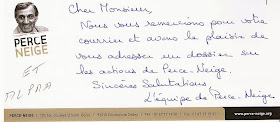 Cher Monsieur,
Nous vous remercions pour votre
courrier et avons le plaisir de
vous adresser un dossier sur
les actions de Perce-Neige.
Sincères Salutations
L'équipe de Perce-Neige.
PERCE
NEIGE
ET
PERCE-NEIGE
www.perce-neige.org